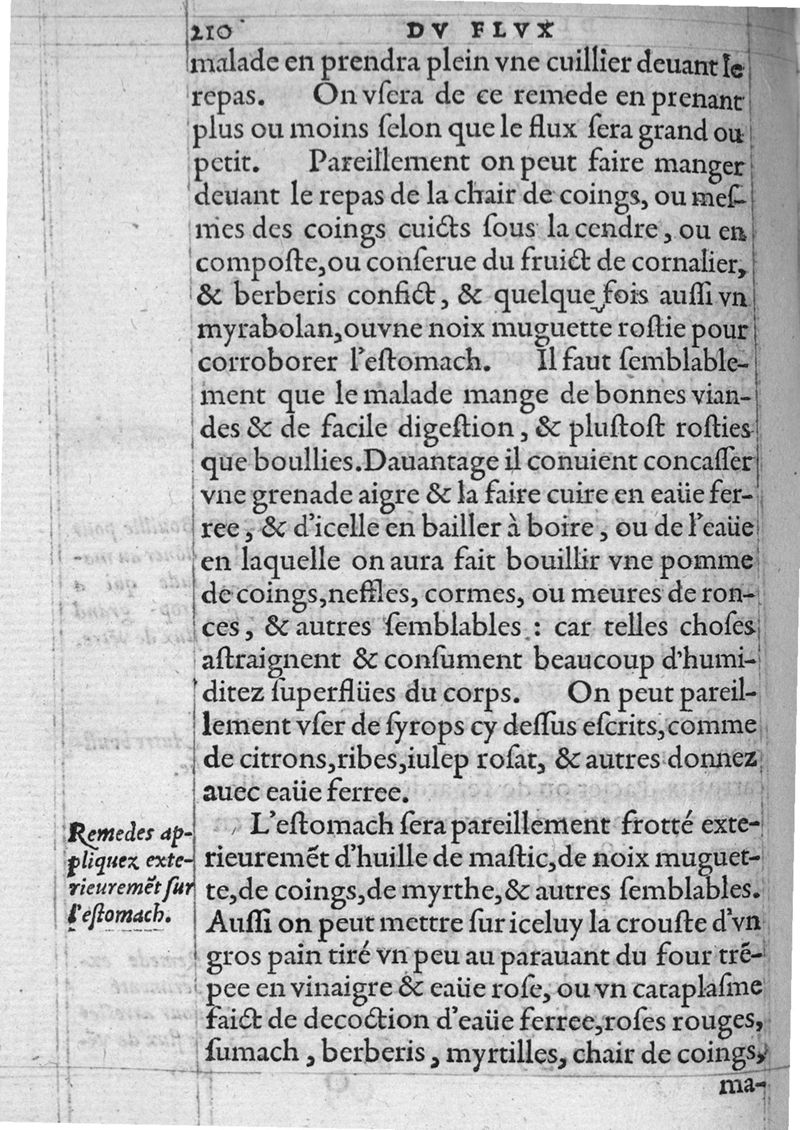 210 DV FLVX
malade en prendra plein vne cuillier deuant le
repas. On vſera de ce remede en prenant
plus ou moins ſelon que le flux ſera grand ou
petit. Pareillement on peut faire manger
deuant le repas de la chair de coings, ou meſ-
mes des coings cuicts ſous la cendre, ou en
compoſte, ou conſerue du fruict de cornalier,
& berberis confict, & quelque fois auſſi vn
myrabolan, ou vne noix muguette roſtie pour
corroborer l'eſtomach. Il faut ſemblable-
ment que le malade mange de bonnes vian-
des & de facile digeſtion, & pluſtoſt roſties
que boullies. Dauantage il conuient concaſſer
vne grenade aigre & la faire cuire en eaüe fer-
ree, & d'icelle en bailler à boire, ou de l'eaüe
en laquelle on aura fait bouillir vne pomme
de coings, neffles, cormes, ou meures de ron-
ces, & autres ſemblables : car telles choſes
aſtraignent & conſument beaucoup d'humi-
ditez ſuperflües du corps. On peut pareil-
lement vſer de ſyrops cy deſſus eſcrits, comme
de citrons, ribes, iulep roſat, & autres donnez
auec eaüe ferree.
L'eſtomach ſera pareillement frotté exte-
rieuremẽt d'huille de maſtic, de noix muguet-
te, de coings, de myrthe, & autres ſemblables.
Auſſi on peut mettre ſur iceluy la crouſte d'vn
gros pain tiré vn peu au parauant du four trẽ-
pee en vinaigre & eaüe roſe, ou vn cataplaſme
faict de decoction d'eaüe ferree, roſes rouges,
ſumach, berberis, myrtilles, chair de coings,
ma-
Remedes ap-
pliquez exte-
rieuremẽt ſur
l'eſtomach.